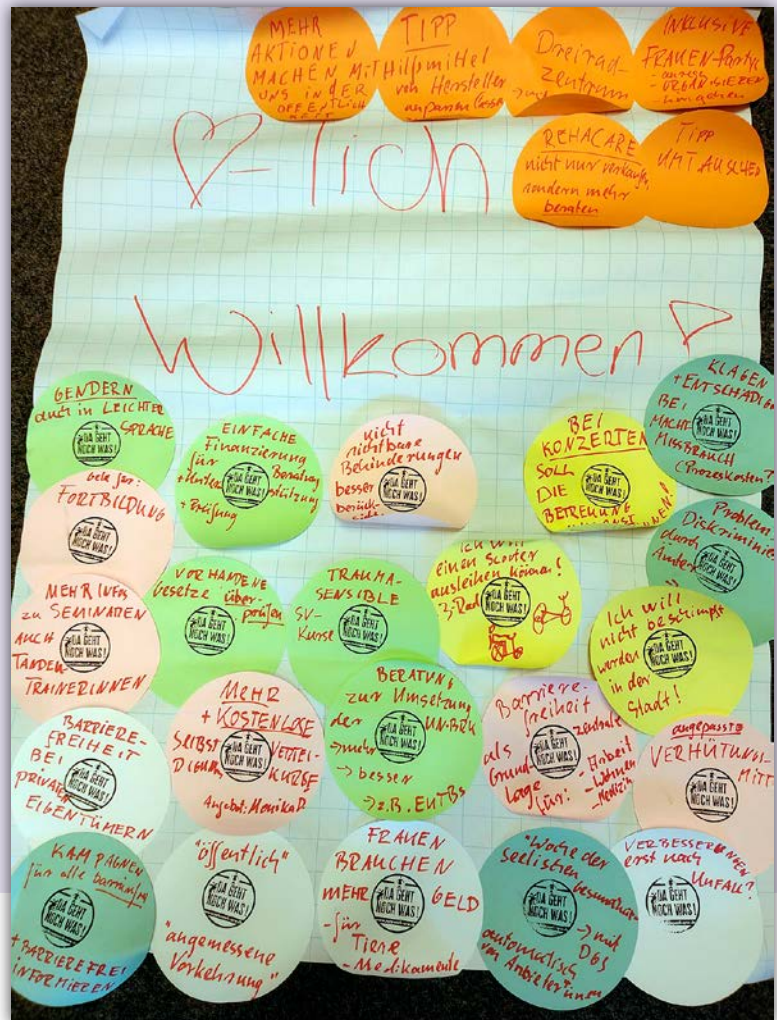 MEHR
AKTIONEN
MACHEN MIT
UNS IN DER
ÖFFENTLICH
KEIT
TIPP
Hilfsmittel
von Hersteller
anpassen lassen
Dreirad-
zentrum
INKLUSIVE
FRAUEN-Party
- ORGANISIEREN
REHACARE
nicht nur verkaufen,
sondern mehr
beraten
TIPP
UMTAUSCHEN
♡-lich
Willkommen
GENDERN
auch in LEICHTER
SPRACHE
DA GEHT
NOCH WAS!
EINFACHE
Finanzierung
für Beratung
+ Unterstützung
+ Prüfung
DA GEHT
NOCH WAS!
nicht
sichtbare
Behinderungen
besser
berück-
DA GEHT
NOCH WAS!
BEI
KONZERTEN
SOLL
DIE
BETREUUNG
DA GEHT
NOCH WAS!
KLAGEN
+ ENTSCHÄDIG
BEI
MACHT
MISSBRAUCH
(Prozesskosten?
DA GEHT
NOCH WAS!
Geld für:
FORTBILDUNG
DA GEHT
NOCH WAS!
VORHANDENE
Gesetze überprüfen
DA GEHT
NOCH WAS!
TRAUMA-
SENSIBLE
SV-
Kurse
DA GEHT
NOCH WAS!
Ich will
einen Scooter
ausleihen können!
3-Rad
DA GEHT
NOCH WAS!
Problem
Diskriminie
durch
Ämter
DA GEHT
NOCH WAS!
MEHR INFOS
zu SEMINAREN
AUCH
TANDEM-
TRAINERINNEN
DA GEHT
NOCH WAS!
Ich will
nicht beschimpft
werden
in der
Stadt!
DA GEHT
NOCH WAS!
BARRIERE-
FREIHEIT
BEI
privaten
EIGENTÜMERN
DA GEHT
NOCH WAS!
MEHR
+ KOSTENLOSE
SELBST
VERTEI-
DIGUNGS
KURSE
Angebot: Monika D.
DA GEHT
NOCH WAS!
BERATUNG
zur Umsetzung
der UN-BRK
→ mehr
→ besser
→ z.B. EUTBs
DA GEHT
NOCH WAS!
Barriere-
freiheit
als zentrale
Grund
lage
für: - Arbeit
- Wohnen
- Medizin
DA GEHT
NOCH WAS!
angepasste
VERHÜTUNGS-
MITT
DA GEHT
NOCH WAS!
KAMPAGNEN
für alle barrierefrei
+ BARRIEREFREI
INFORMIEREN
DA GEHT
NOCH WAS!
"öffentlich"
"angemessene
Vorkehrung"
DA GEHT
NOCH WAS!
FRAUEN
BRAUCHEN
MEHR GELD
- für
Tiere
- Medikamente
DA GEHT
NOCH WAS!
"Woche der
seelischen Gesundheit"
→ mit
DGS
automatisch
von Anbieter*innen
DA GEHT
NOCH WAS!
VERBESSERUNGEN
erst nach
UNFALL?
DA GEHT
NOCH WAS!